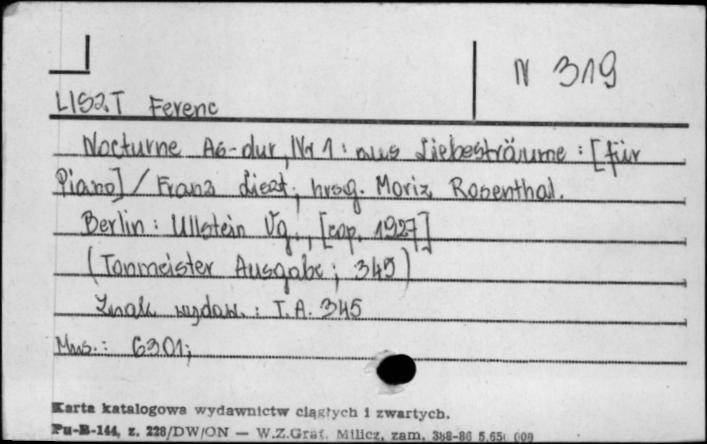 N 319
LISZT Ferenc
Nocturne As-dur, Nr 1 : aus Liebesträume : [für
Piano] / Franz Liszt ; hrsg. Moriz Rosenthal.
Berlin : Ullstein Vg., [cop. 1927]
(Tonmeister Ausgabe ; 345)
Znak wydaw. : T.A. 345
Mus.: 6301;
Karta katalogowa wydawnictw ciągłych i zwartych.
Pu-B-144, z. 228/DW/ON — W.Z.Graf. Milicz, zam. 388-86 5.65